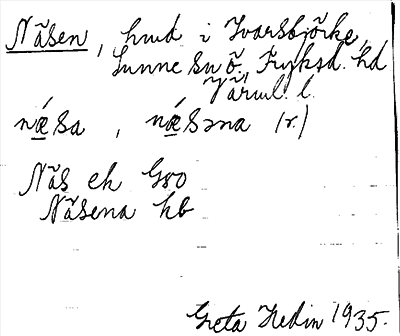 Näsen, hmd i Ivarsbjörke,
Sunne sn ö., Fryksd. hd
Värml. l.
næ´sa , næ´səna (r.)
Näs ek G80
Näsena hb
Greta Hedin 1935.